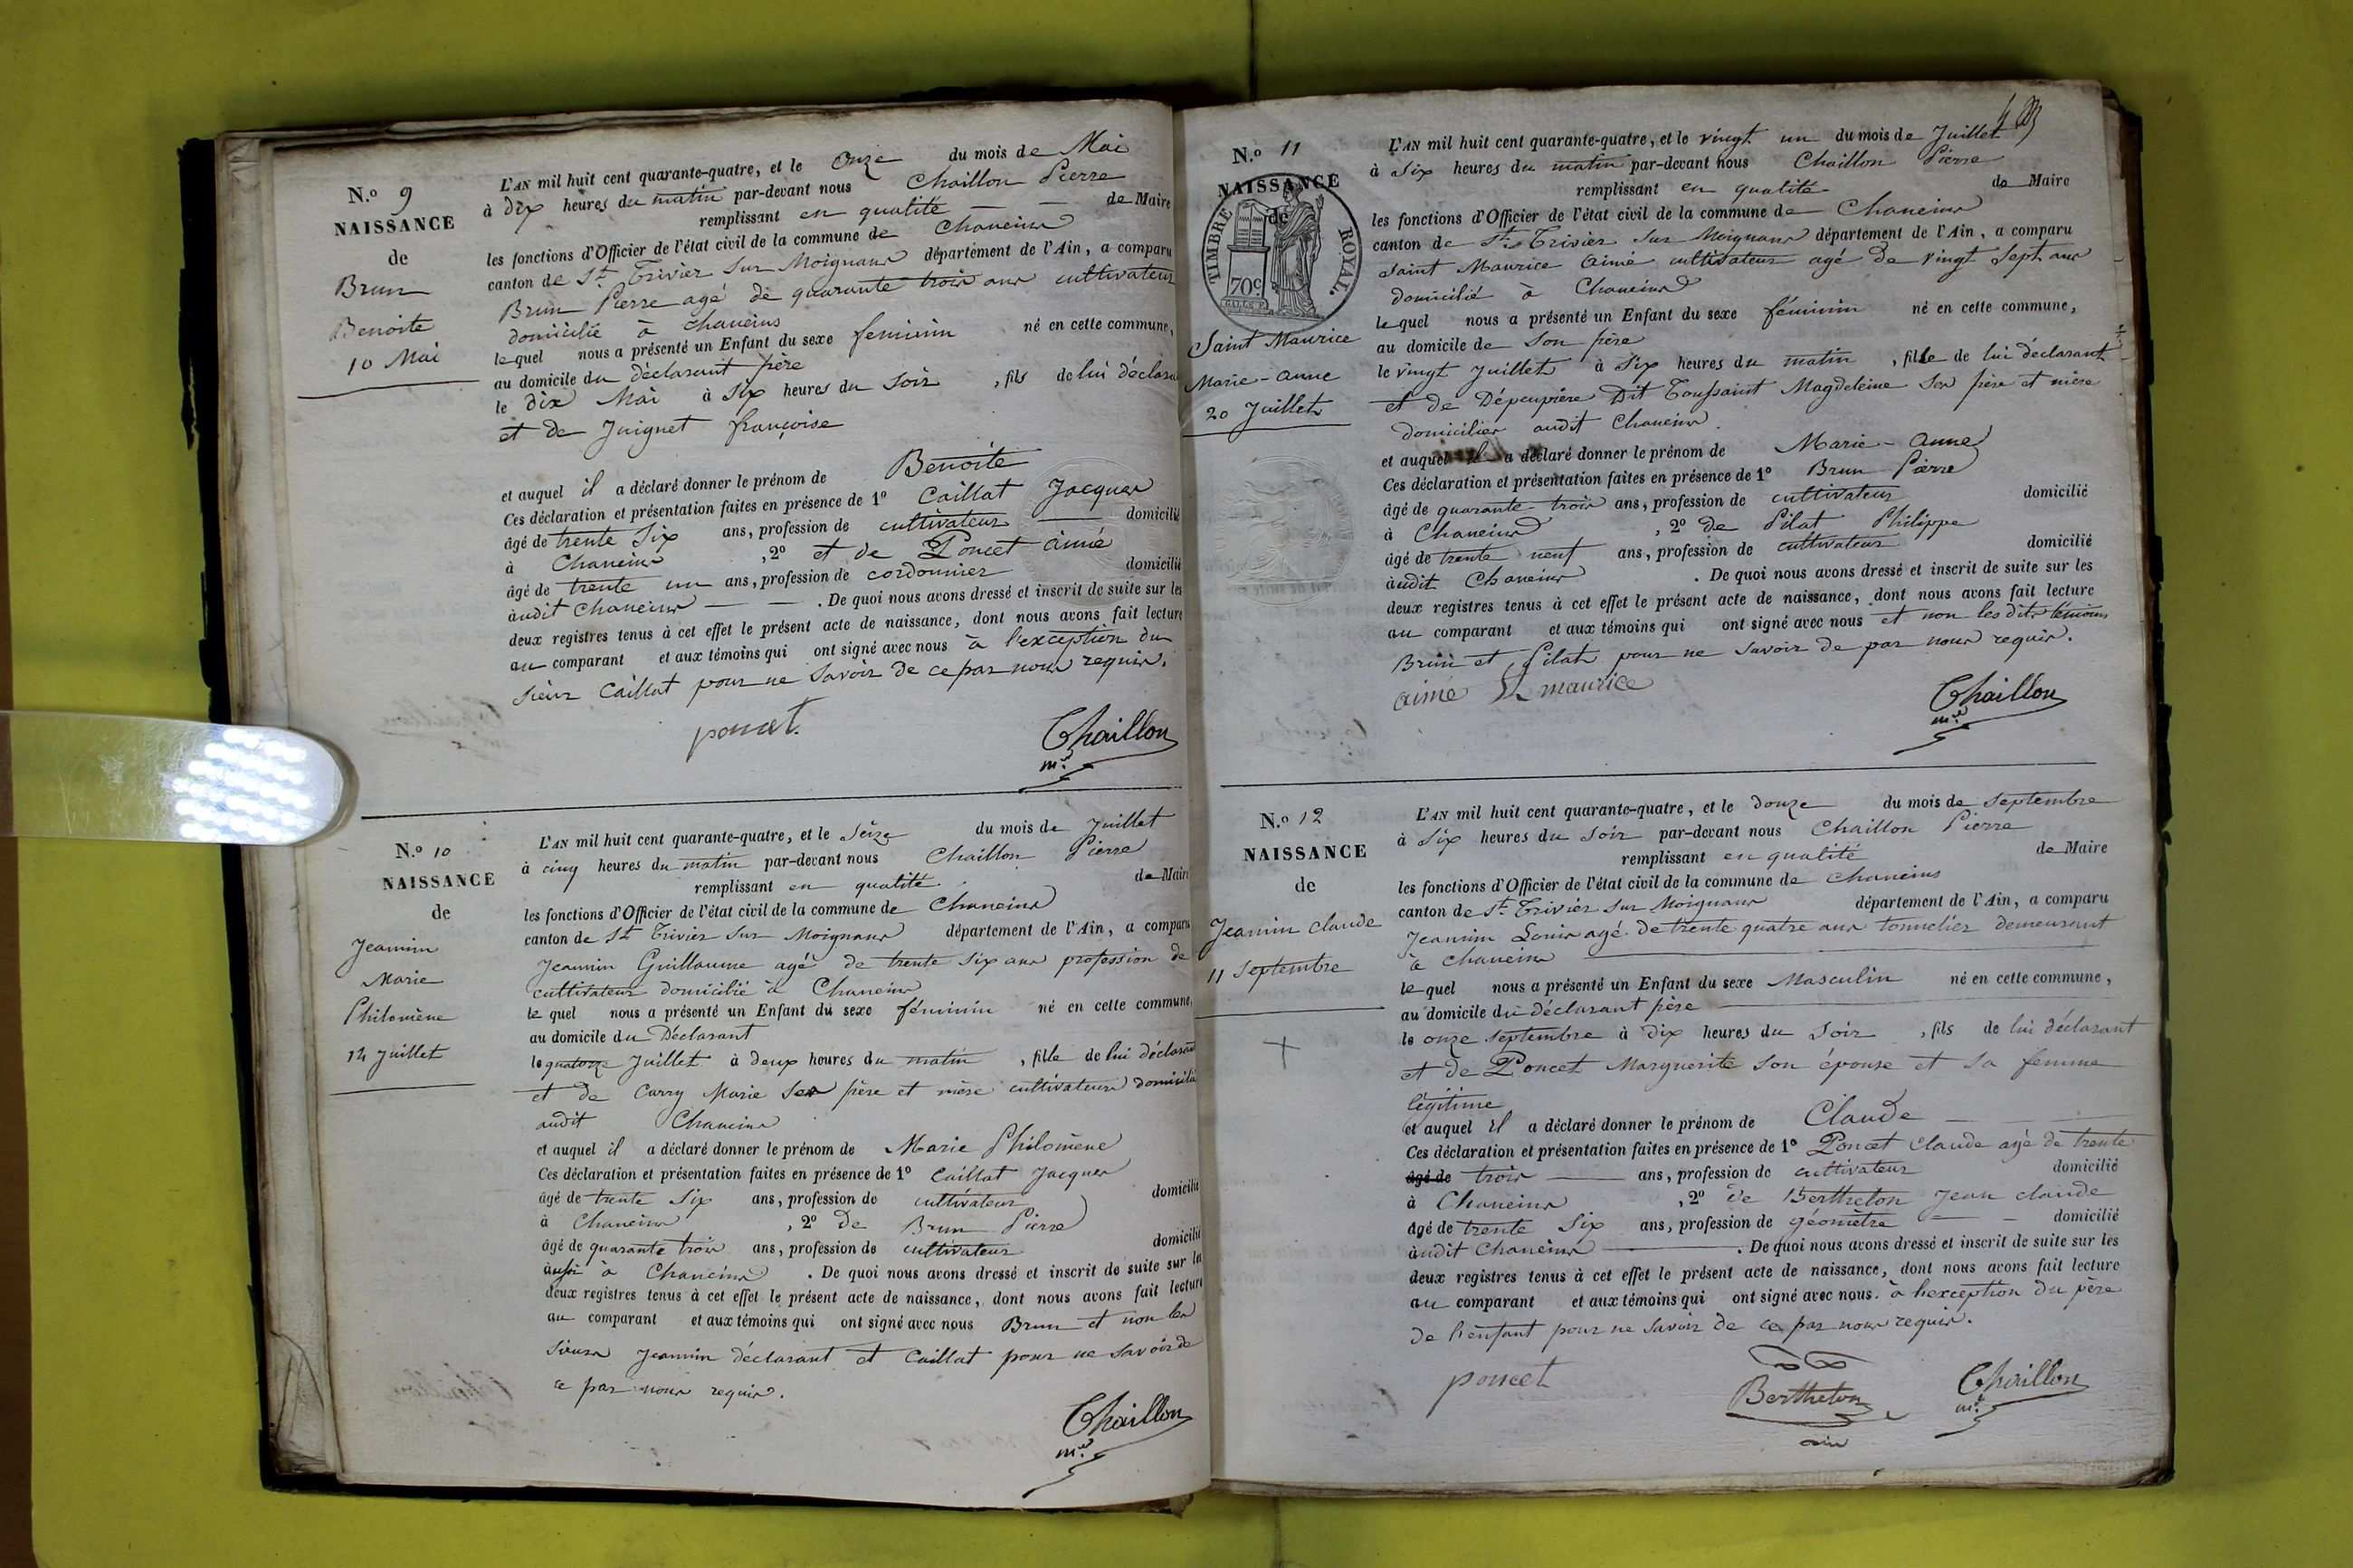 N.o 9
NAISSANCE
de
Brun
Benoite
10 Mai
L'AN mil huit cent quarante-quatre, et le Onze du mois de Mai
à dix heures du matin par-devant nous Chaillon Pierre
remplissant en qualité de Maire
les fonctions d'Officier de l'état civil de la commune de Chaneins
canton de St. Trivier sur Moignans département de l'Ain, a comparu
Brun Pierre agé de quarante trois ans cultivateur
domicilié à chaneins
lequel nous a présenté un Enfant du sexe feminin né en cette commune,
au domicile du déclarant père
le dix Mai à six heures du soir, fils de lui déclara
et de Juignet françoise
et auquel il a déclaré donner le prénom de Benoite
Ces déclaration et présentation faites en présence de 1o Caillat Jacques
âgé de trente six ans, profession de cultivateur domicilié
à Chaneins, 2o et de Poncet aimé
âgé de trente un ans, profession de cordonnier domicilié
audit chaneins. De quoi nous avons dressé et inscrit de suite sur les
deux registres tenus à cet effet le présent acte de naissance, dont nous avons fait lecture
au comparant et aux témoins qui ont signé avec nous à l'exception du
sieur Caillat pour ne savoir de ce par nous requis.
poncet.
Chaillon
mre
N.o 10
NAISSANCE
de
Jeannin
Marie
Philomène
14 Juillet
L'AN mil huit cent quarante-quatre, et le seize du mois de Juillet
à cinq heures du matin par-devant nous Chaillon Pierre
remplissant en qualité de Maire
les fonctions d'Officier de l'état civil de la commune de Chaneins
canton de St Trivier sur Moignans département de l'Ain, a comparu
Jeannin Guillaume agé de trente six ans profession de
cultivateur domicilié à Chaneins
lequel nous a présenté un Enfant du sexe féminin né en cette commune,
au domicile du Déclarant
le quatorze Juillet à deux heures du matin, fille de lui déclarant
et de Carry Marie ses père et mère cultivateurs domicilié
audit Chaneins
et auquel il a déclaré donner le prénom de Marie Philomène
Ces déclaration et présentation faites en présence de 1o Caillat Jacques
âgé de trente six ans, profession de cultivateur domicilié
à Chaneins, 2o de Brun Pierre
âgé de quarante trois ans, profession de cultivateur domicilié
aussi à Chaneins. De quoi nous avons dressé et inscrit de suite sur les
deux registres tenus à cet effet le présent acte de naissance, dont nous avons fait lecture
au comparant et aux témoins qui ont signé avec nous Brun et non les
sieurs Jeannin déclarant et Caillat pour ne savoir de
ce par nous requis.
Chaillon
mre
N.o 11
NAISSANCE
de
TIMBRE ROYAL.
70c
Saint Maurice
Marie-anne
20 Juillet
L'AN mil huit cent quarante-quatre, et le vingt un du mois de Juillet
à six heures du matin par-devant nous Chaillon Pierre
remplissant en qualité de Maire
les fonctions d'Officier de l'état civil de la commune de Chaneins
canton de St. Trivier sur Moignans département de l'Ain, a comparu
Saint Maurice aimé cultivateur agé de vingt sept ans
domicilié à Chaneins
lequel nous a présenté un Enfant du sexe féminin né en cette commune,
au domicile de son père
le vingt Juillet à six heures du matin, fille de lui déclarant
et de Dépeupière Dit Toussaint Magdeleine ses père et mère
domiciliés audit Chaneins.
et auquel il a déclaré donner le prénom de Marie-anne
Ces déclaration et présentation faites en présence de 1o Brun Pierre
âgé de quarante trois ans, profession de cultivateur domicilié
à Chaneins, 2o de Pilat Philippe
âgé de trente neuf ans, profession de cultivateur domicilié
audit Chaneins. De quoi nous avons dressé et inscrit de suite sur les
deux registres tenus à cet effet le présent acte de naissance, dont nous avons fait lecture
au comparant et aux témoins qui ont signé avec nous et non les dits témoins
Brun et Pilat pour ne savoir de par nous requis.
aimé St maurice
Chaillon
mre
N.o 12
NAISSANCE
de
Jeannin claude
11 septembre
L'AN mil huit cent quarante-quatre, et le douze du mois de septembre
à six heures du soir par-devant nous Chaillon Pierre
remplissant en qualité de Maire
les fonctions d'Officier de l'état civil de la commune de chaneins
canton de St. Trivier sur Moignans département de l'Ain, a comparu
Jeannin Louis agé de trente quatre ans tonnelier demeurant
à chaneins
lequel nous a présenté un Enfant du sexe Masculin né en cette commune,
au domicile du déclarant père
le onze septembre à dix heures du soir, fils de lui déclarant
et de Poncet Marguerite son épouse et sa femme
légitime
et auquel il a déclaré donner le prénom de Claude
Ces déclaration et présentation faites en présence de 1o Poncet claude agé de trente
âgé de trois ans, profession de cultivateur domicilié
à Chaneins, 2o de Bertheton Jean claude
âgé de trente six ans, profession de géomètre domicilié
audit chaneins. De quoi nous avons dressé et inscrit de suite sur les
deux registres tenus à cet effet le présent acte de naissance, dont nous avons fait lecture
au comparant et aux témoins qui ont signé avec nous. à l'exception du père
de l'enfant pour ne savoir de ce par nous requis.
poncet
Bertheton
Chaillon
mre